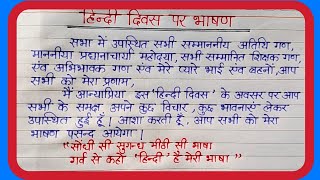 हिन्दी दिवस पर भाषण
सभा में उपस्थित सभी सम्माननीय अतिथि गण,
माननीया प्रधानाचार्या महोदया, सभी सम्मानित शिक्षक गण,
एंव अभिभावक गण एंव मेरे प्यारे भाई एंव बहनों, आप
सभी को मेरा प्रणाम,
मैं आन्याप्रिया इस 'हिन्दी दिवस' के अवसर पर आप
सभी के समक्ष अपने कुछ विचार, कुछ भावनाएं लेकर
उपस्थित हुई हूँ। आशा करती हूँ, आप सभी को मेरा
भाषण पसन्द आयेगा।
"सोंधी सी सुगन्ध मीठी सी भाषा
गर्व से कहो 'हिन्दी' है मेरी भाषा"